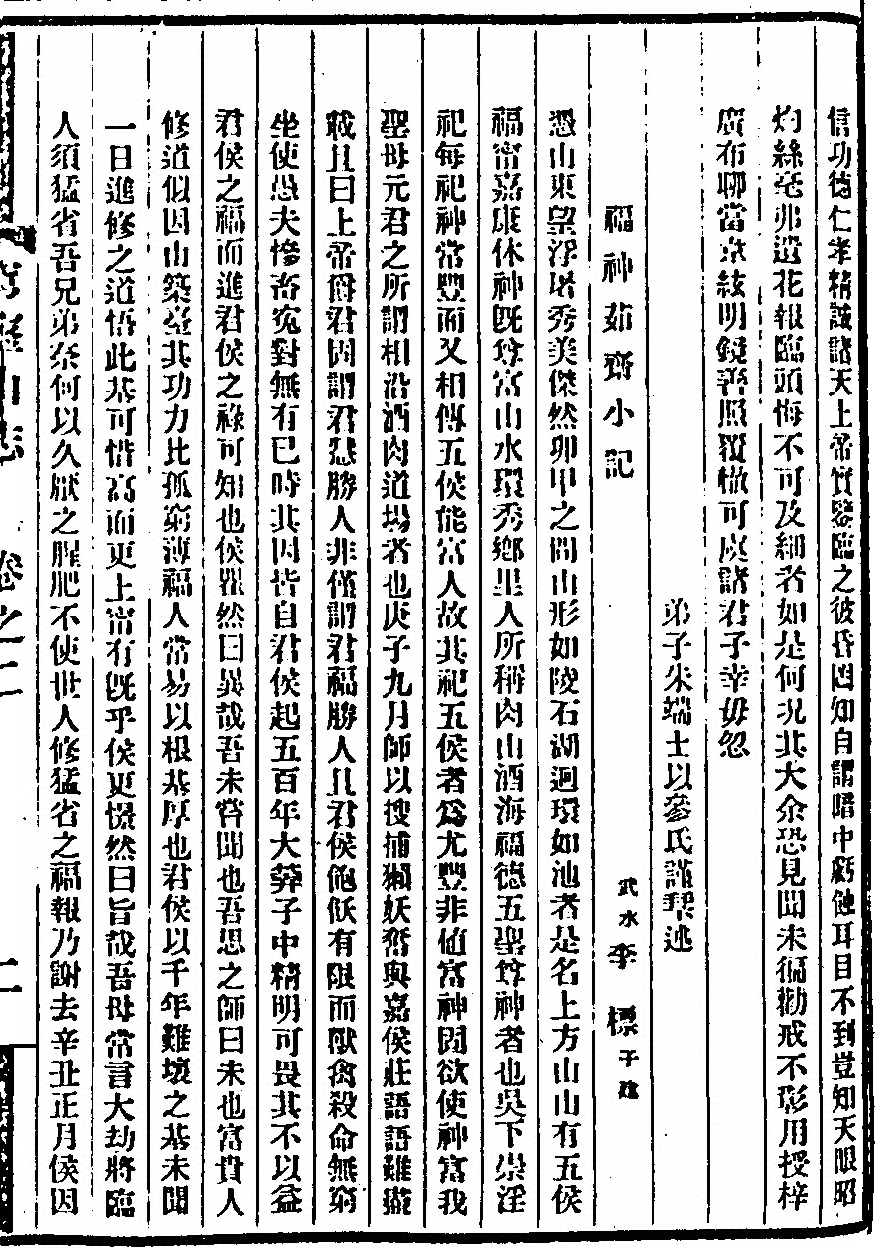 信功德仁孝精誠諸天上帝實鑒臨之彼昏罔知自謂暗中虧蝕耳目不到豈知天眼昭
灼絲毫弗遺花報臨頭悔不可及細者如是何况其大余恐見聞未徧勸戒不彰用授梓
廣布聊當京絃明鏡善照覆轍可虞諸君子幸毋忽
弟子朱端士以參氏謹拜述
福神茹齋小記
武水李標子建
憑山東望浮塔秀美傑然卯甲之間山形如陵石湖迴環如池者是名上方山山有五侯
福甯嘉康休神旣尊富山水環秀鄉里人所稱肉山酒海福德五聖尊神者也吳下崇淫
祀每祀神常豐而又相傳五侯能富人故其祀五侯者爲尤豐非値富神固欲使神富我
聖母元君之所謂相沿酒肉道場者也庚子九月師以搜捕獺妖嘗與嘉侯莊語語難
載且曰上帝爵君因謂君愆勝人非僅謂君福勝人且君侯飽飫有限而獸禽殺命無窮
坐使愚夫慘畜寃對無有已時其因皆自君侯起五百年大莽子中精明可畏其不以益
君侯之福而進君侯之祿可知也侯瞿然曰異哉吾未嘗聞也吾思之師曰未也富貴人
修道似因山築臺其功力比孤窮薄福人常易以根基厚也君侯以千年難壞之基未聞
一日進修之道悟此基可惜高而更上甯有旣乎侯更憬然曰旨哉吾母常言大劫將臨
人須猛省吾兄弟奈何以久厭之腥肥不使世人修猛省之福報乃謝去辛丑正月侯因
卷之二
二